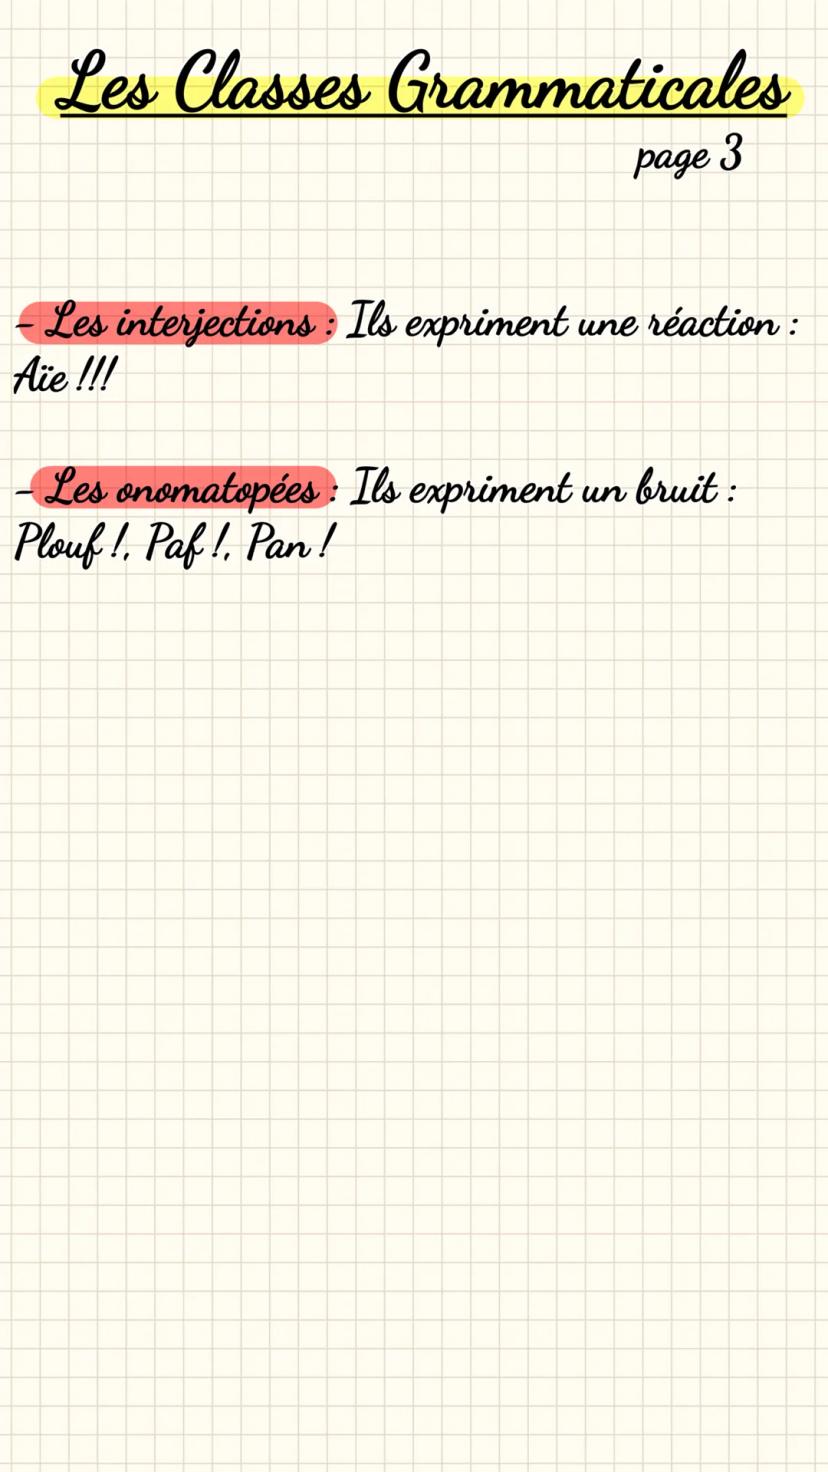 Les Classes Grammaticales
page 3
- Les interjections : Ils expriment une réaction :
Aïe !!!
- Les onomatopées : Ils expriment un bruit :
Plouf !, Paf !, Pan !